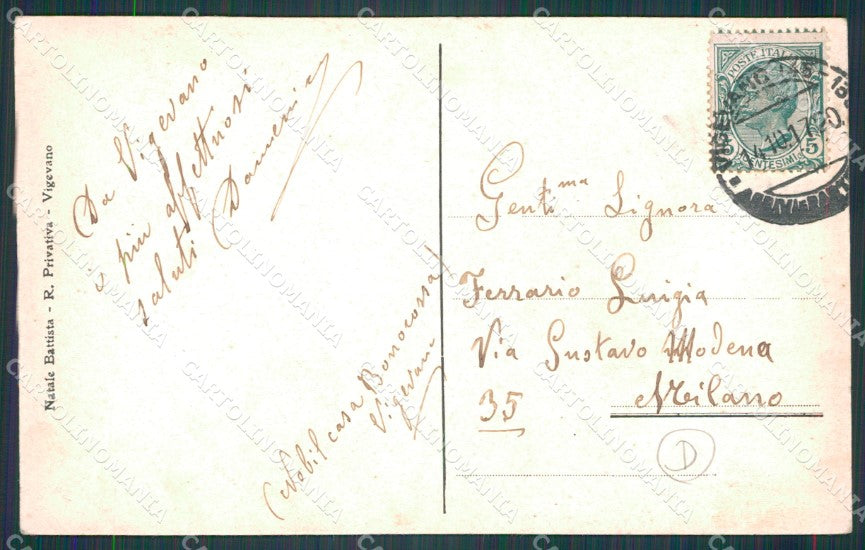 Natale Battista - R. Privativa - Vigevano
Da Vigevano
i più affettuosi
saluti
(Nobil casa Bonacossa
Vigevano
POSTE ITALIANE
CENTESIMI 5
VIGEVANO
Gentᵐᵃ Signora
Ferrario Luigia
Via Gustavo Modena
35 Milano
D
CARTOLINOMANIA